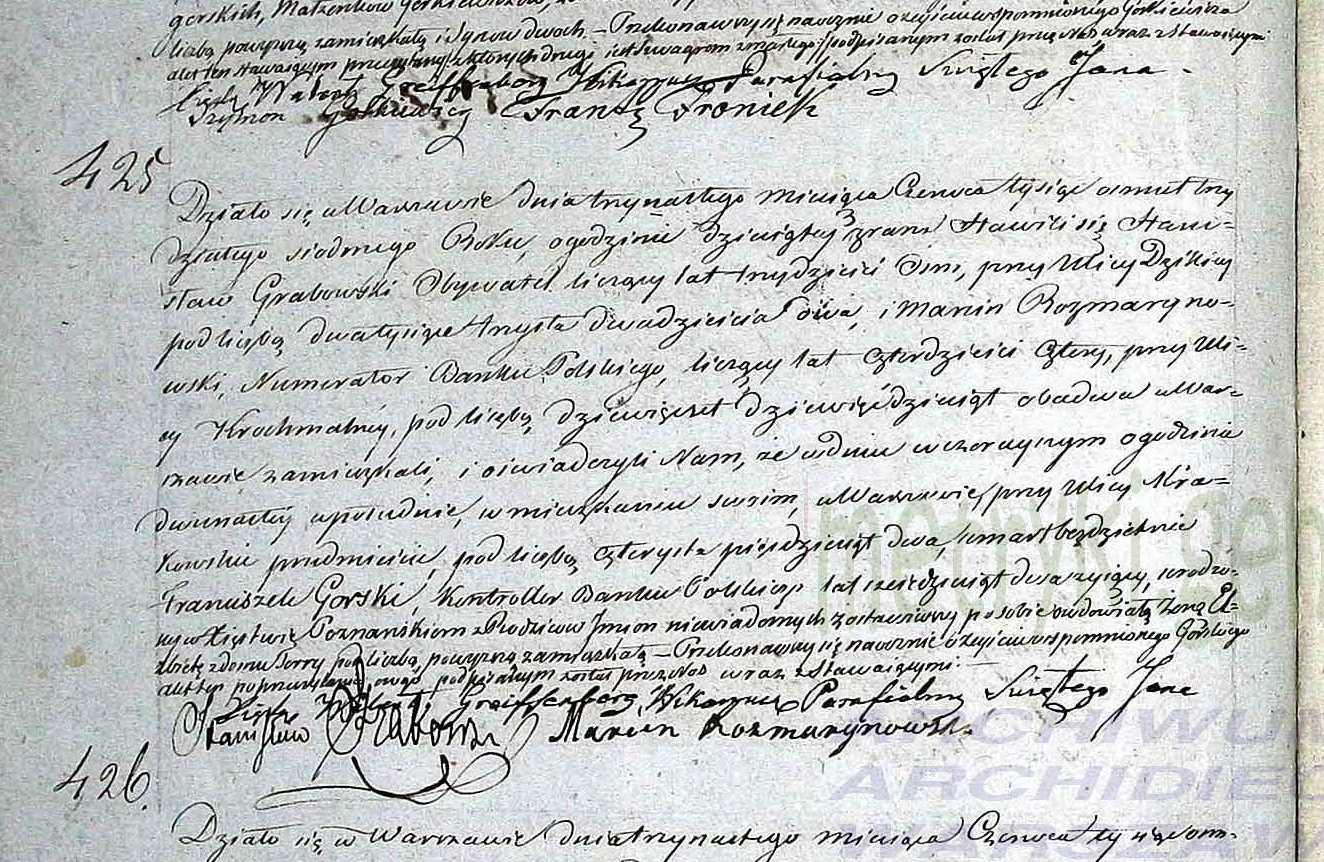 gorskich, Małżonków Gorkiewiczów,
liczbą powyższą zamieszkałą i Synów dwoch – Przekonawszy się naocznie o zejściu wspomnionego Gorkiewicza
akt ten stawaiącym przeczytany z których drugi iest szwagrem zmarłego podpisanym został przez Nas wraz z stawaiącymi
Xiądz Walenty Greiffenberg Wikaryusz Parafialny Świętego Jana
Szymon Gorkiewicz Frantz Froniek
425
Działo się w Warszawie dnia trzynastego miesiąca Czerwca tysiąc osmset trzy
dziestego siodmego Roku, o godzinie dziesiątey zrana Stawili się Stani=
sław Grabowski Obywatel liczący lat trzydzieści Osm, przy Ulicy Dzikiey
pod liczbą dwa tysiące trzysta dwadzieścia dwa, i Marcin Rozmaryno=
wski, Numerator Banku Polskiego, liczący lat czterdzieści cztery, przy Uli=
cy Krochmalnéy, pod liczbą dziewięcset dziewięćdziesiąt obadwa w War=
szawie zamieszkali, i oświadczyli Nam, że w dniu wczorayszym o godzinie
dwunastéy w południe, w mieszkaniu swoim, w Warszawie, przy Ulicy Kra=
kowskie przedmieście, pod liczbą czterysta pięćdziesiąt dwa, umarł bezdzietnie
Franciszek Gorski, Kontroller Banku Polskiego lat sześćdziesiąt dwa żyiący, urodzo=
ny w Xięstwie Poznańskiem z Rodziców Imion niewiadomych zostawiwszy po sobie owdowiałą żonę El=
zbietę z domu Torry pod liczbą powyższą zamieszkałą – Przekonawszy się naocznie o zejściu wspomnionego Gorskiego
akt ten po przeczytaniu onego podpisanym został przez Nas wraz z Stawaiącymi. –
Xiądz Walenty Greiffenberg Wikaryusz Parafialny Świętego Jana
Stanisław Grabowski Marcin Rozmarynowski
426.
Działo się w Warszawie dnia trzynastego miesiąca Czerwca tysiąc osm=
metryki.gen
ARCHIWUM
ARCHIDIEC
WARSZAW